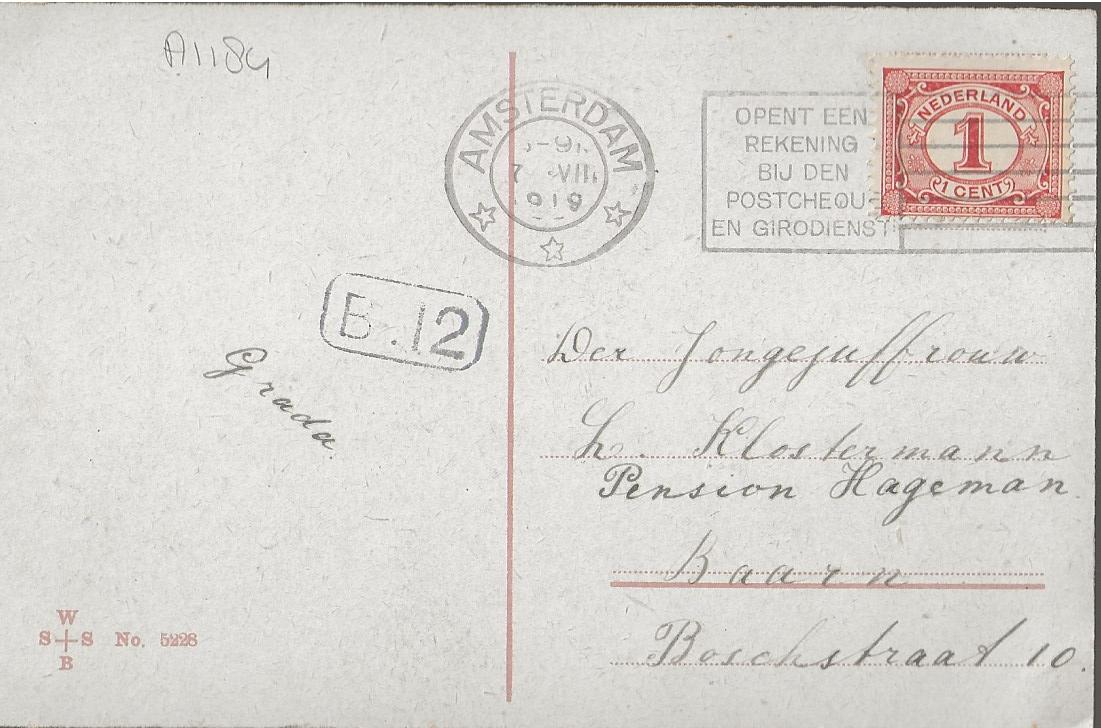 A1184
AMSTERDAM
VIII
1919
OPENT EEN
REKENING
BIJ DEN
POSTCHEQUE
EN GIRODIENST
NEDERLAND
1
1 CENT
B.12
Grada.
Der Jongejuffrouw
L. Klostermann
Pension Hageman.
Baarn
Boschstraat 10.
W
S S No. 5228
B